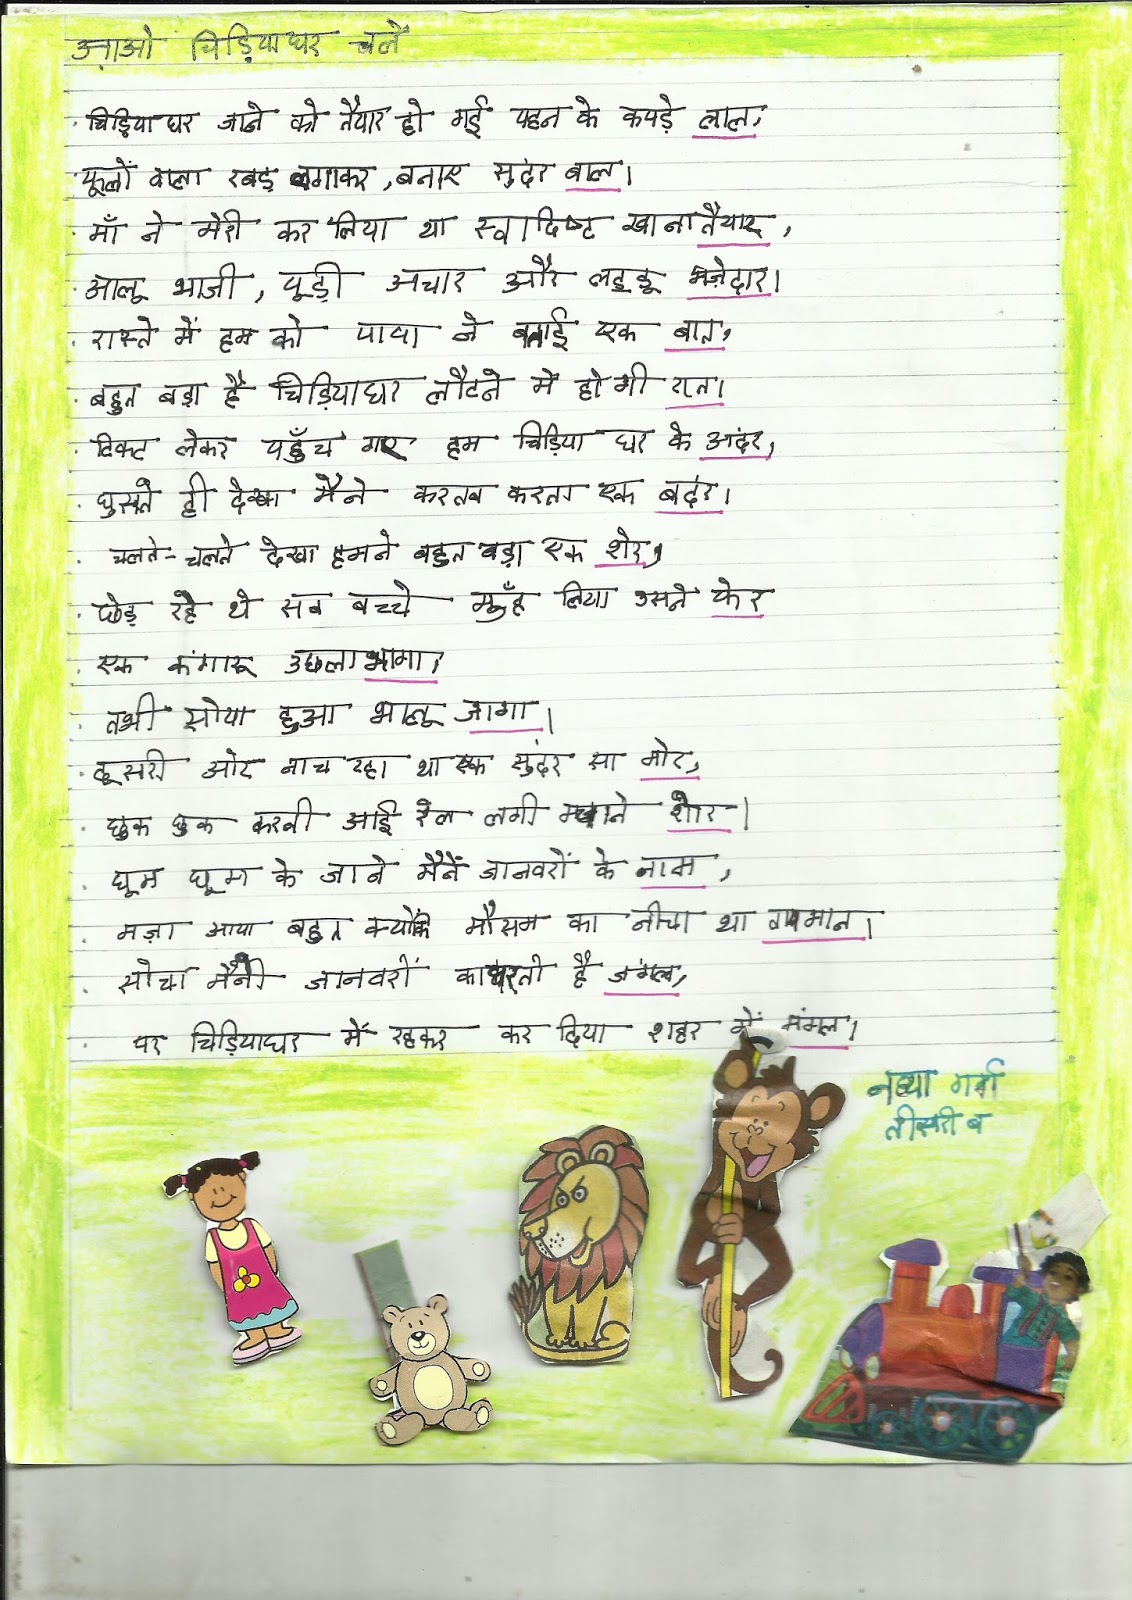 आओ चिड़ियाघर चलें
चिड़ियाघर जाने को तैयार हो गई पहन के कपड़े लाल,
फूलों वाला रबड़ लगाकर, बनाए सुंदर बाल।
माँ ने मेरी कर लिया था स्वादिष्ट खाना तैयार,
आलू भाजी, पूड़ी अचार और लड्डू मज़ेदार।
रास्ते में हम को पापा ने बताई एक बात,
बहुत बड़ा है चिड़ियाघर लौटने में होगी रात।
टिकट लेकर पहुँच गए हम चिड़िया घर के अंदर,
घुसते ही देखा मैने करतब करता एक बदंर।
चलते-चलते देखा हमने बहुत बड़ा एक शेर,
छेड़ रहे थे सब बच्चे मुँह लिया उसने फेर
एक कंगारू उछला भागा,
तभी सोया हुआ भालू जागा।
दूसरी ओर नाच रहा था एक सुंदर सा मोर,
छुक छुक करती आई रेल लगी मचाने शोर।
घूम घूम के जाने मैनें जानवरों के नाम,
मज़ा आया बहुत क्योंकि मौसम का नीचा था तापमान।
सोचा जानवरों का है जंगल,
पर चिड़ियाघर में रहकर कर दिया शहर में मंगल।
नव्या गर्ग
तीसरी ब